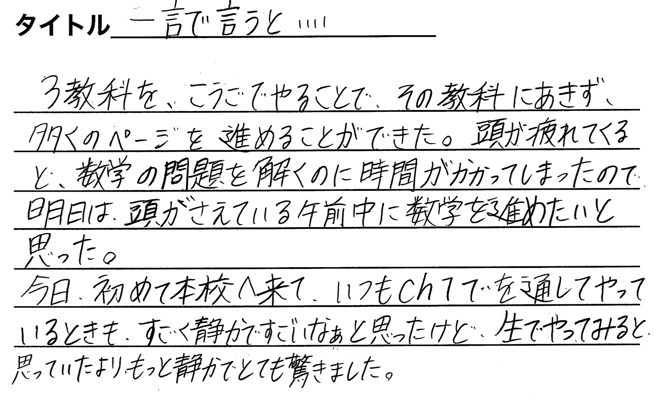 タイトル 一言で言うと....
3教科を、こうごでやることで、その教科にあきず、
多くのページを進めることができた。頭が疲れてくる
と、数学の問題を解くのに時間がかかってしまったので
明日は、頭がさえている午前中に数学を進めたいと
思った。
今日、初めて本校へ来て、いつもch77でを通してやって
いるときも、すごく静かですごいなぁと思ったけど、生でやってみると、
思っていたより、もっと静かでとても驚きました。